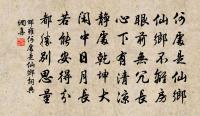 何處是仙鄉
仙鄉不離房
眼前無冗長
心下有清涼
靜處乾坤大
閑中日月長
若能安得分
都勝別思量
邵雍何處是仙鄉詞典
網集